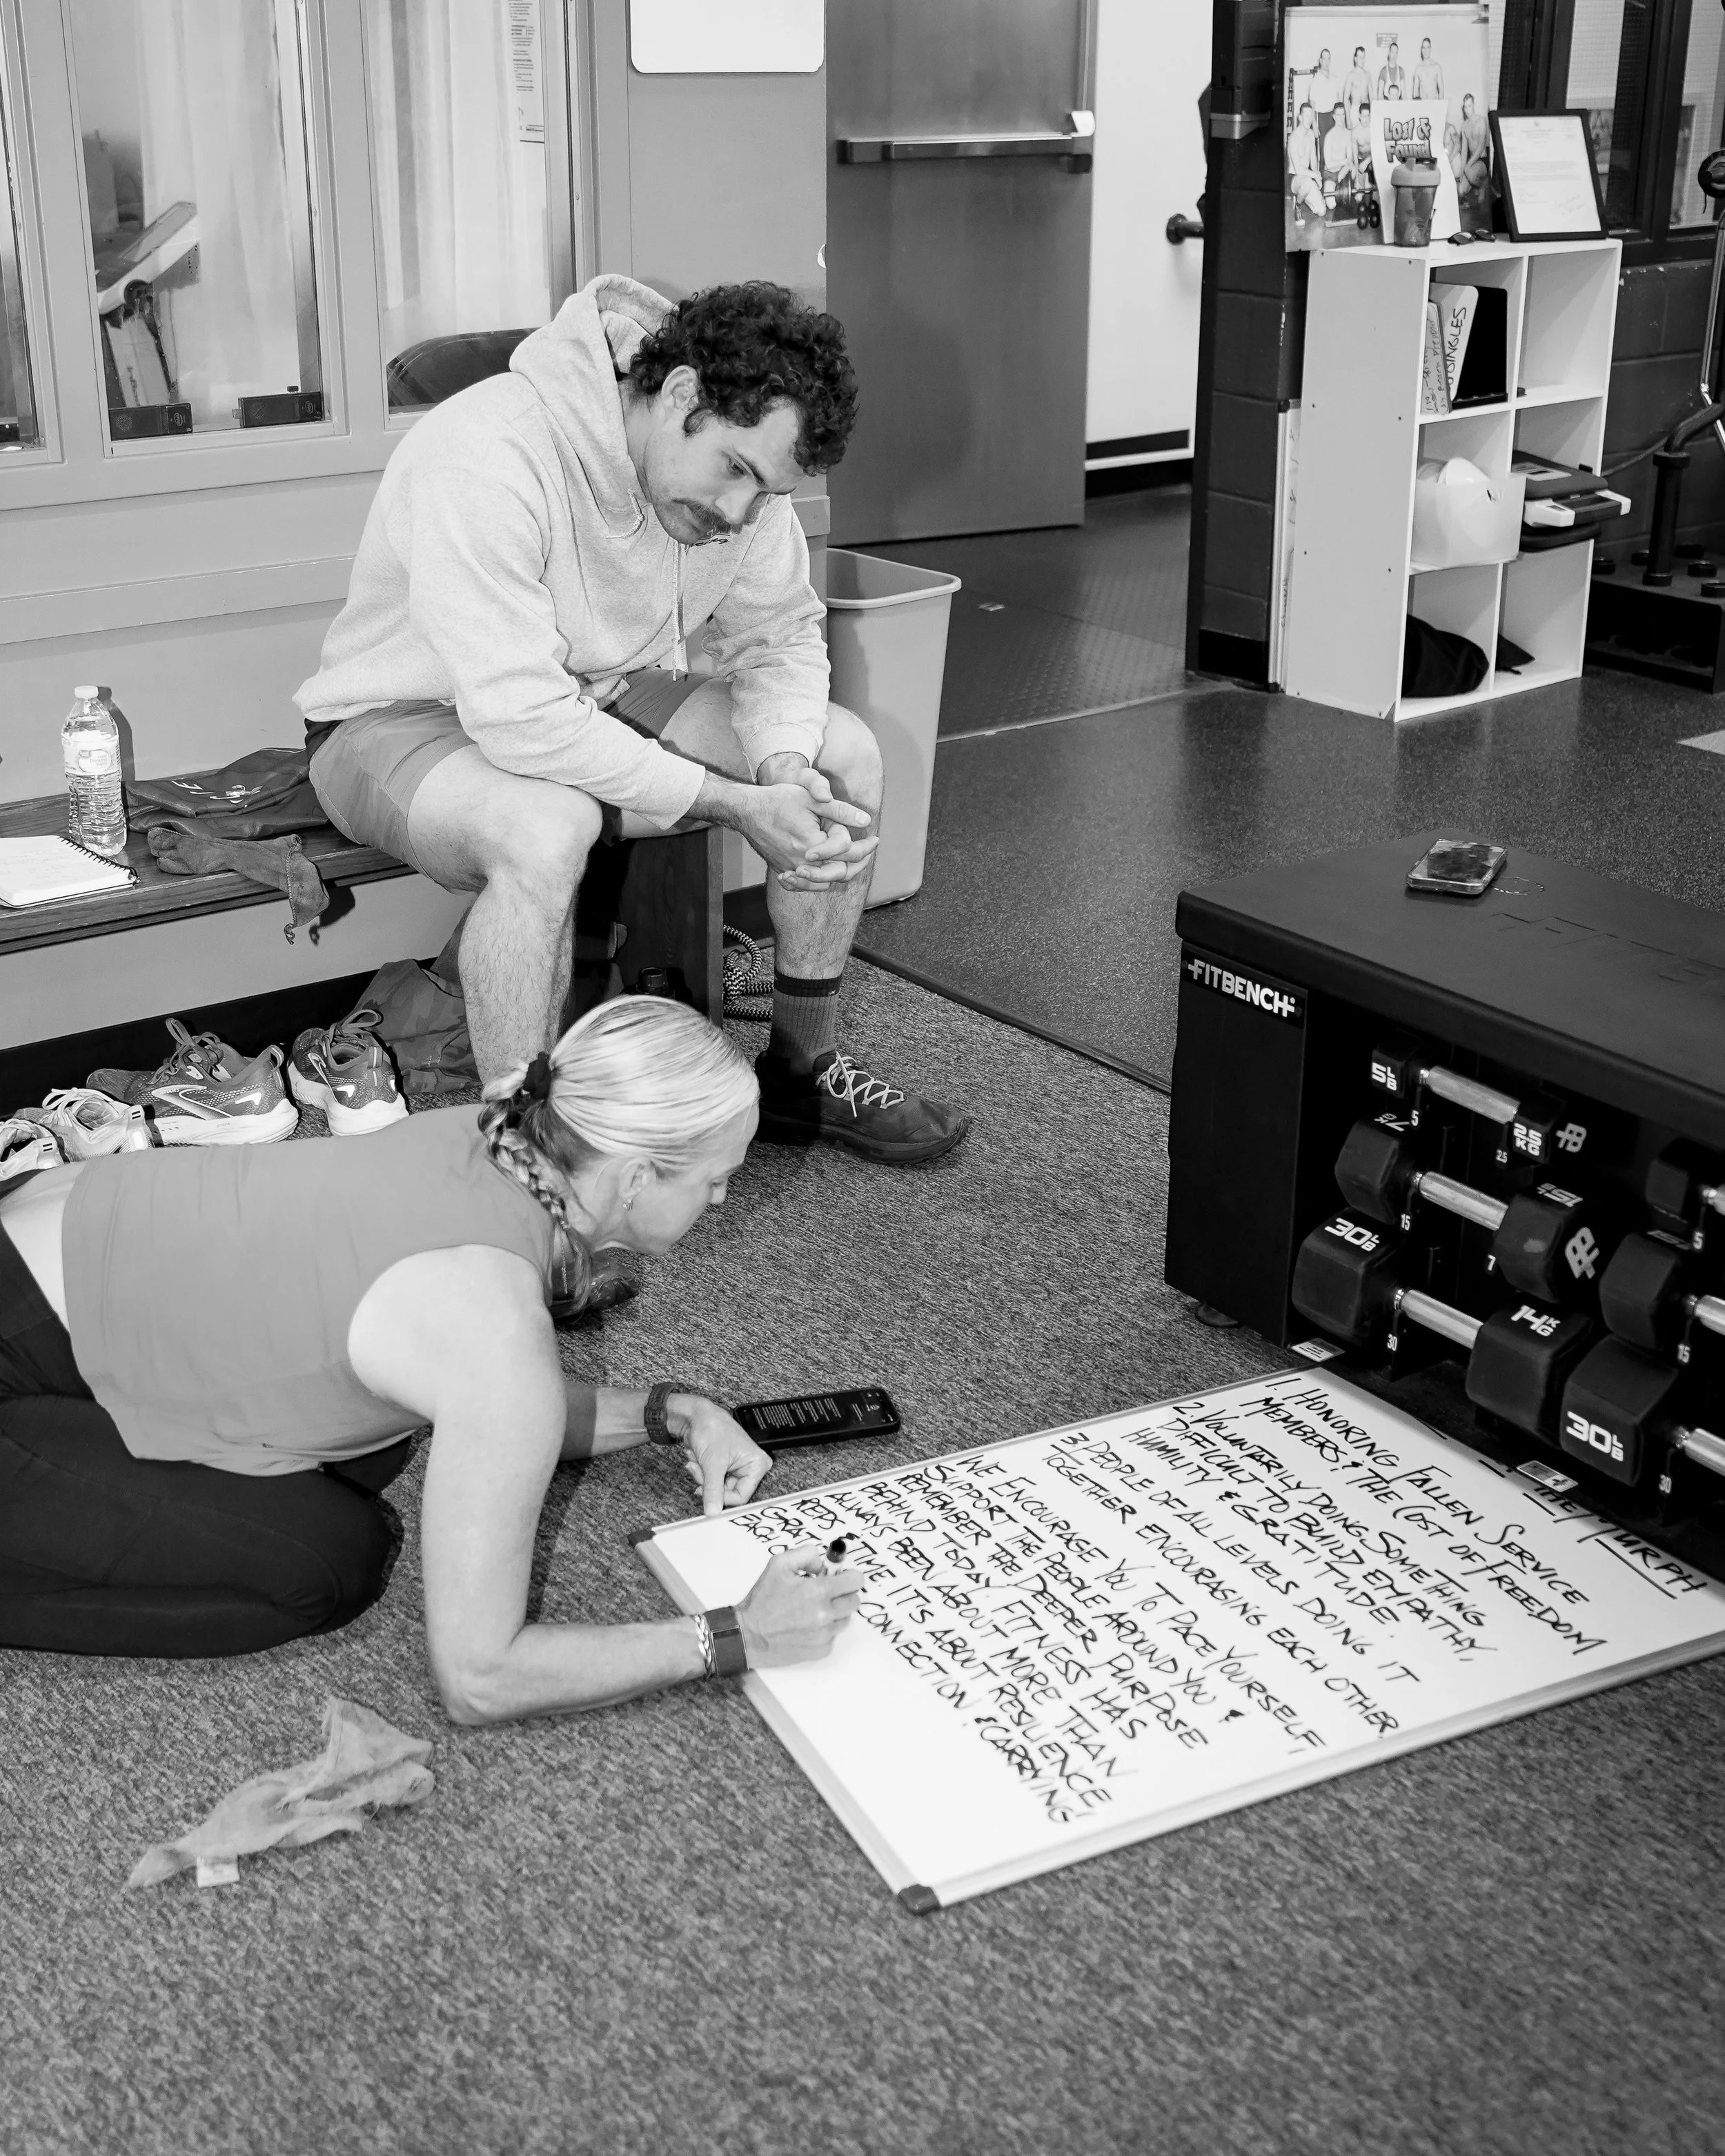 Lost &
Found
DINGLES
FITBENCH
5 LB
5
25 KG
2.5
15
7
30 LB
14 KG
30
30 LB
5
15
30
THE MURPH
1. HONORING FALLEN SERVICE
MEMBERS & THE COST OF FREEDOM
2. VOLUNTARILY DOING SOMETHING
DIFFICULT TO BUILD EMPATHY,
HUMILITY & GRATITUDE.
3. PEOPLE OF ALL LEVELS DOING IT
TOGETHER ENCOURAGING EACH OTHER.
WE ENCOURAGE YOU TO PACE YOURSELF,
SUPPORT THE PEOPLE AROUND YOU &
REMEMBER THE DEEPER PURPOSE
BEHIND TODAY. FITNESS HAS
ALWAYS BEEN ABOUT MORE THAN
REPS & TIME. IT'S ABOUT RESILIENCE,
GRAT CONNECTION & CARRYING
EACH O